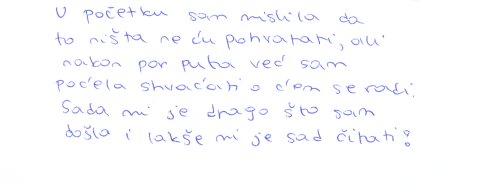 U početku sam mislila da
to ništa ne ću pohvatati, ali
nakon par puta već sam
počela shvaćati o čem se radi.
Sada mi je drago što sam
došla i lakše mi je sad čitati!